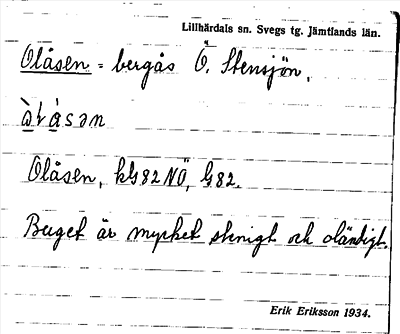 Lillhärdals sn. Svegs tg. Jämtlands län.
Olåsen = bergås Ö. Stensjön.
Olåsen, kG82NÖ, G82.
Berget är mycket stenigt och oländigt.
Erik Eriksson 1934.